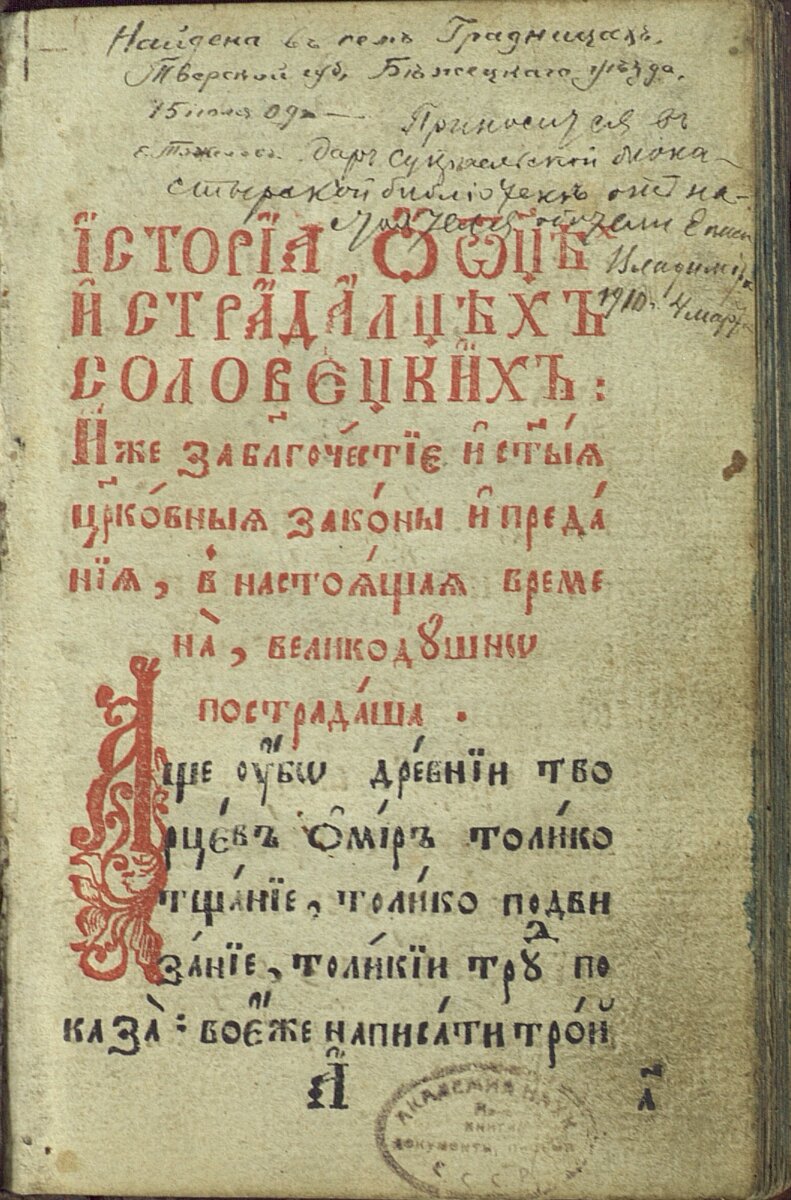 Найдена въ селѣ Градницахъ.
Тверской губ. Бѣжецкаго уѣзда.
15 іюля 09 г.
Приносится въ
даръ Суздальской мона-
стырской библіотекѣ отъ на-
стоятеля обители Епис.
Владимір
1910 г. 4 март
І҆СТОРЇ́А Ѻ҆ Ѻ҆ЦѢ́ХЪ
И҆ СТРАДА́ЛЦѢХЪ
СОЛОВЕ́ЦКИХЪ:
И҆́же за бл҃гоче́стїе и҆ ст҃ы́ѧ
цр҃ко́вныѧ зако́ны и҆ преда́
нїѧ, в настоѧ́щаѧ време
на̀, великодꙋ́шнѡ
пострада́ша.
А҆́ще ᲂу҆́бѡ дре́внїи тво
рце́въ Ѻ҆ми́ръ толи́ко
тща́нїе, толи́ко подви
за́нїе, толи́кїи трꙋⷣ по
каза̀: воє҆́же написа́ти тро́й
А҃ а҃
АКАДЕМИЯ НАУК
КНИГИ
ДОКУМЕНТЫ, ПИСЬМ
СССР